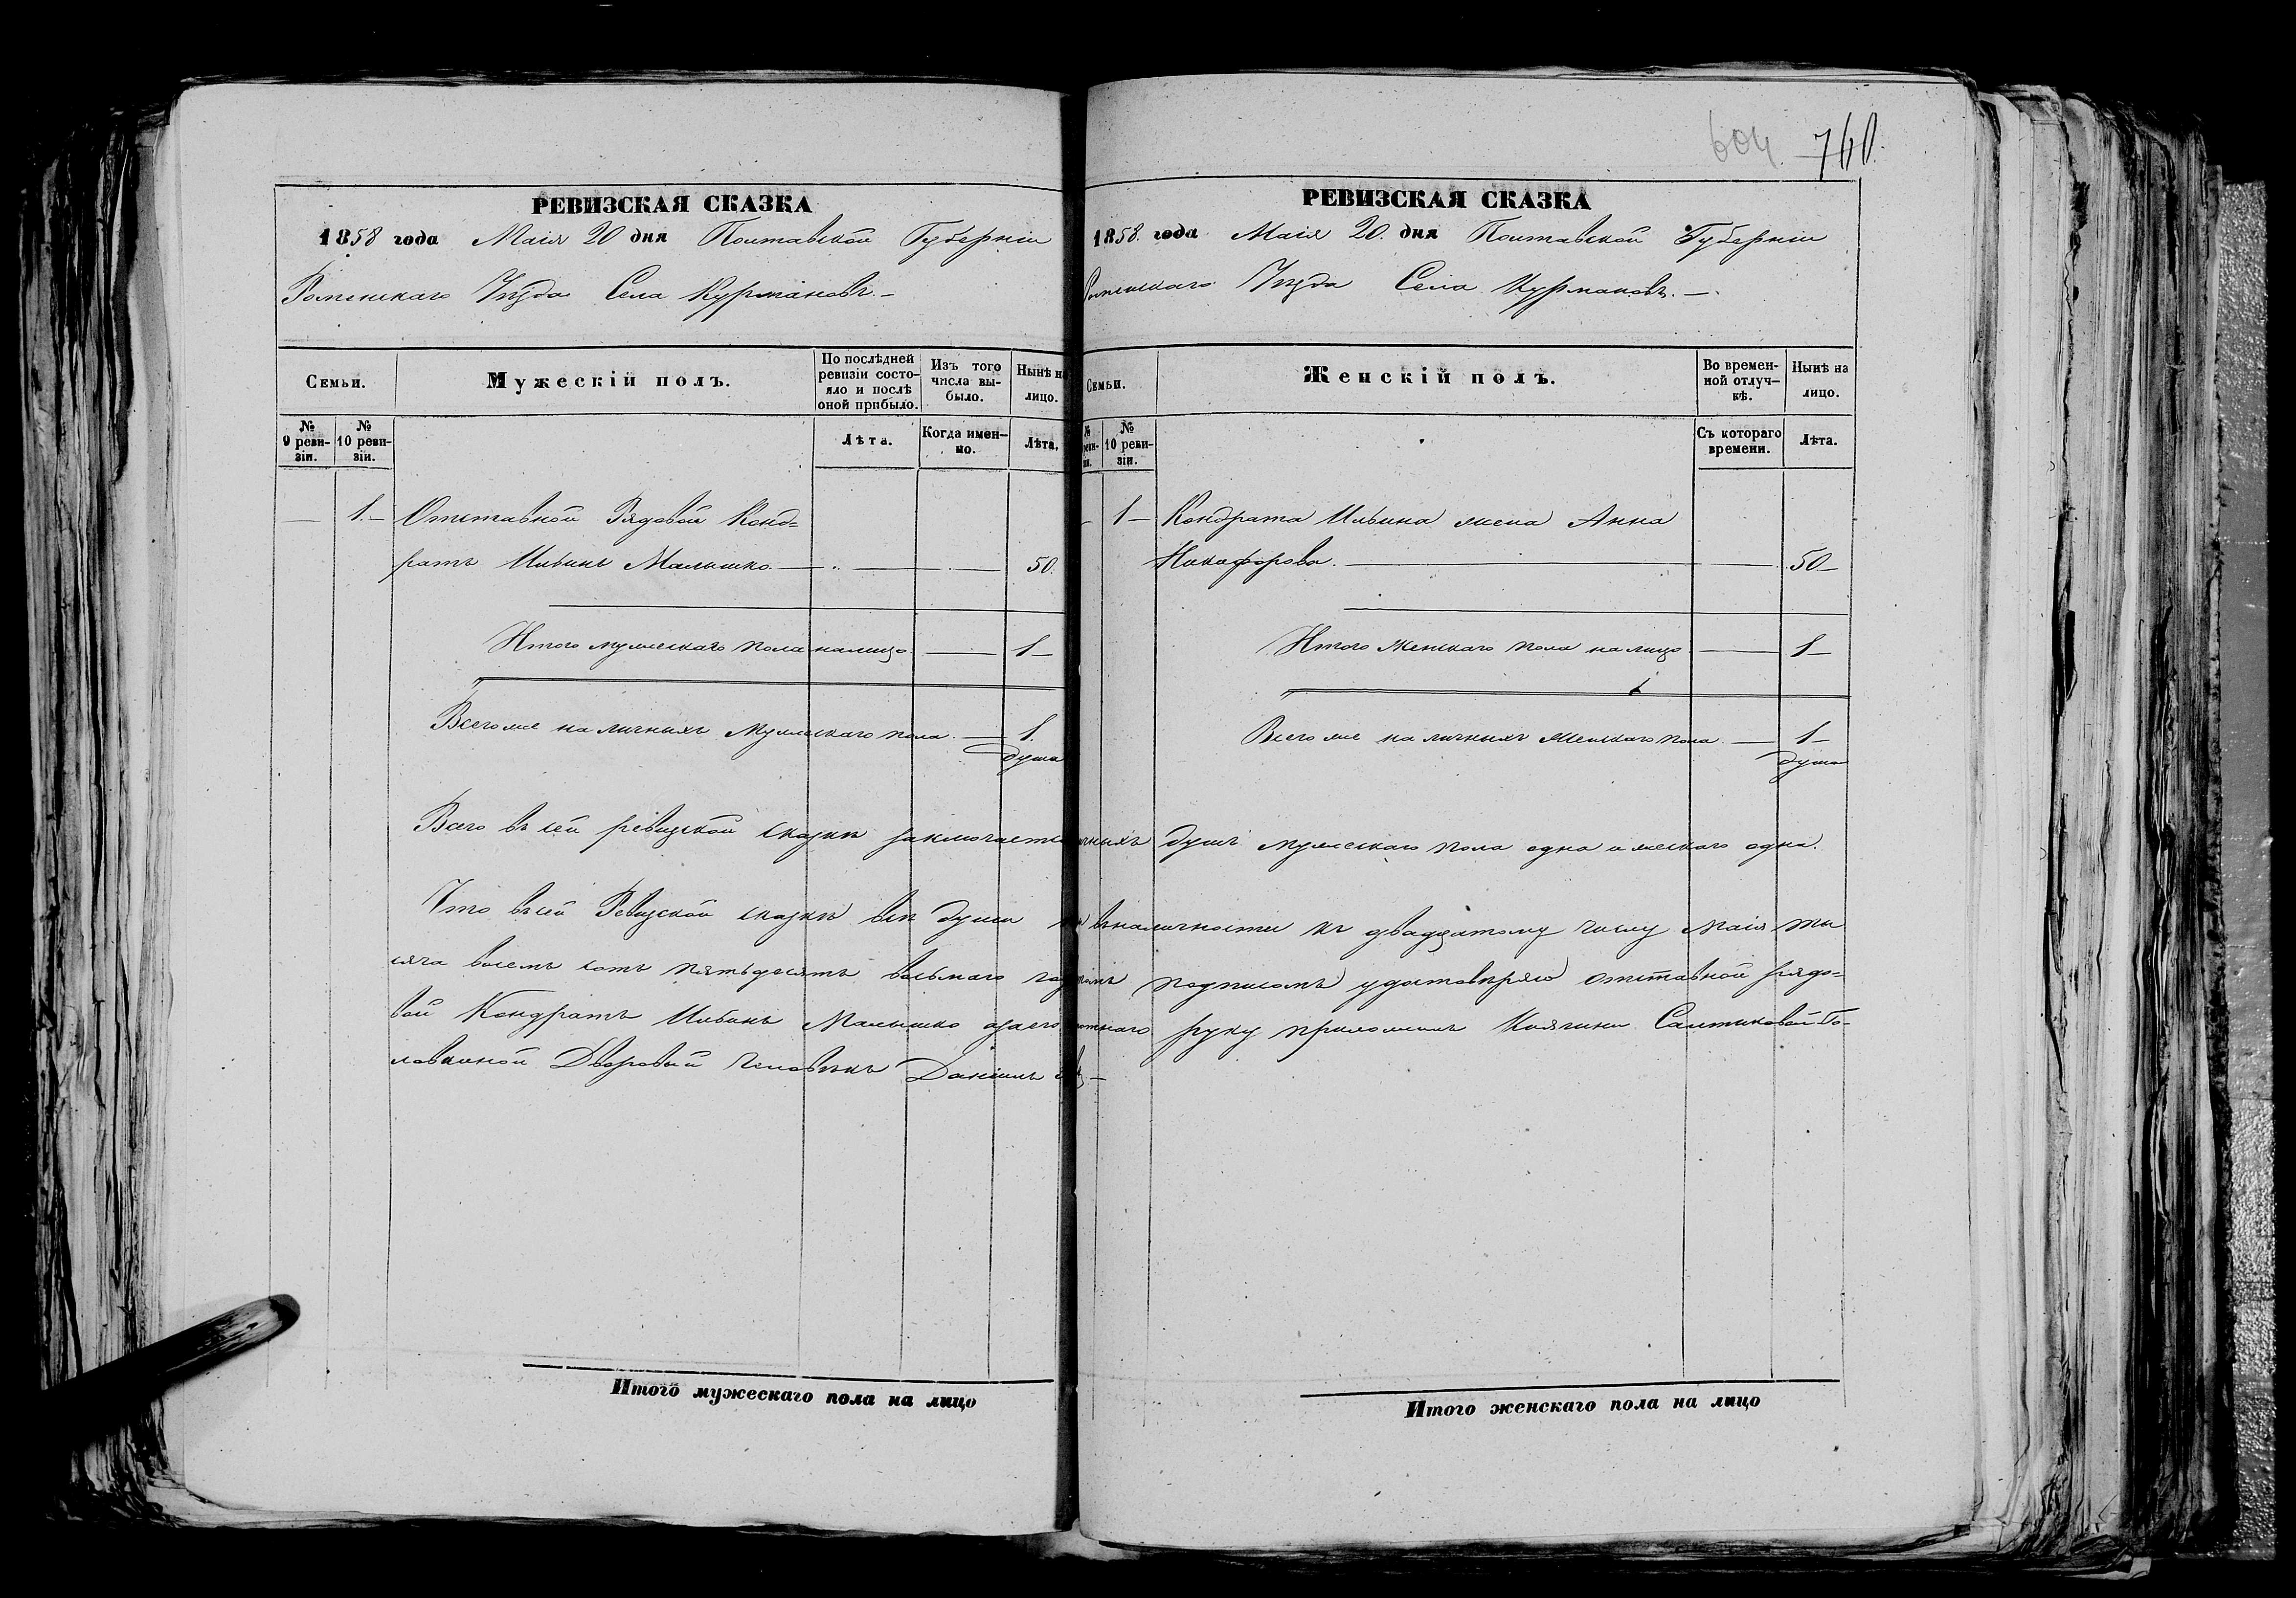 604. 760.
РЕВИЗСКАЯ СКАЗКА
1858 года Маія 20 дня Полтавской Губерніи
Роменскаго Уѣзда Села Курмановъ.—
Семьи.
Мужескій полъ.
По послѣдней ревизіи состояло и послѣ оной прибыло.
Изъ того числа выбыло.
Нынѣ на лицо.
№ 9 ревизіи.
№ 10 ревизіи.
Лѣта.
Когда именно.
Лѣта.
— 1.— Отставной Рядовой Конд=
ратъ Ильинъ Малышко.— 50.
Итого мужескаго пола налицо — 1—
Всего же наличныхъ Мужескаго пола. — 1.
душа
РЕВИЗСКАЯ СКАЗКА
1858. года Маія 20. дня Полтавской Губерніи
Роменскаго Уѣзда Села Курмановъ.—
Семьи.
Женскій полъ.
Во временной отлучкѣ.
Нынѣ на лицо.
№ 10 ревизіи.
Съ котораго времени.
Лѣта.
— 1— Кондрата Ильина жена Анна
Никифорова. — 50—
Итого Женскаго пола на лицо — 1—
Всего же наличныхъ Женскаго пола. — 1—
душа
Всего въ сей ревизской сказкѣ заключается душъ мужескаго пола одна и женскаго одна.
Что въ сей Ревизской сказкѣ всѣ души въ наличности къ двадцатому числу Маія ты
сяча восемь сотъ пятьдесятъ восьмаго подписомъ удостовѣряю отставной рядо=
вой Кондратъ Ильинъ Малышко руку приложилъ Княгини Салтыковой Го-
ловкиной Дворовый человѣкъ Даніилъ
Итого мужескаго пола на лицо
Итого женскаго пола на лицо